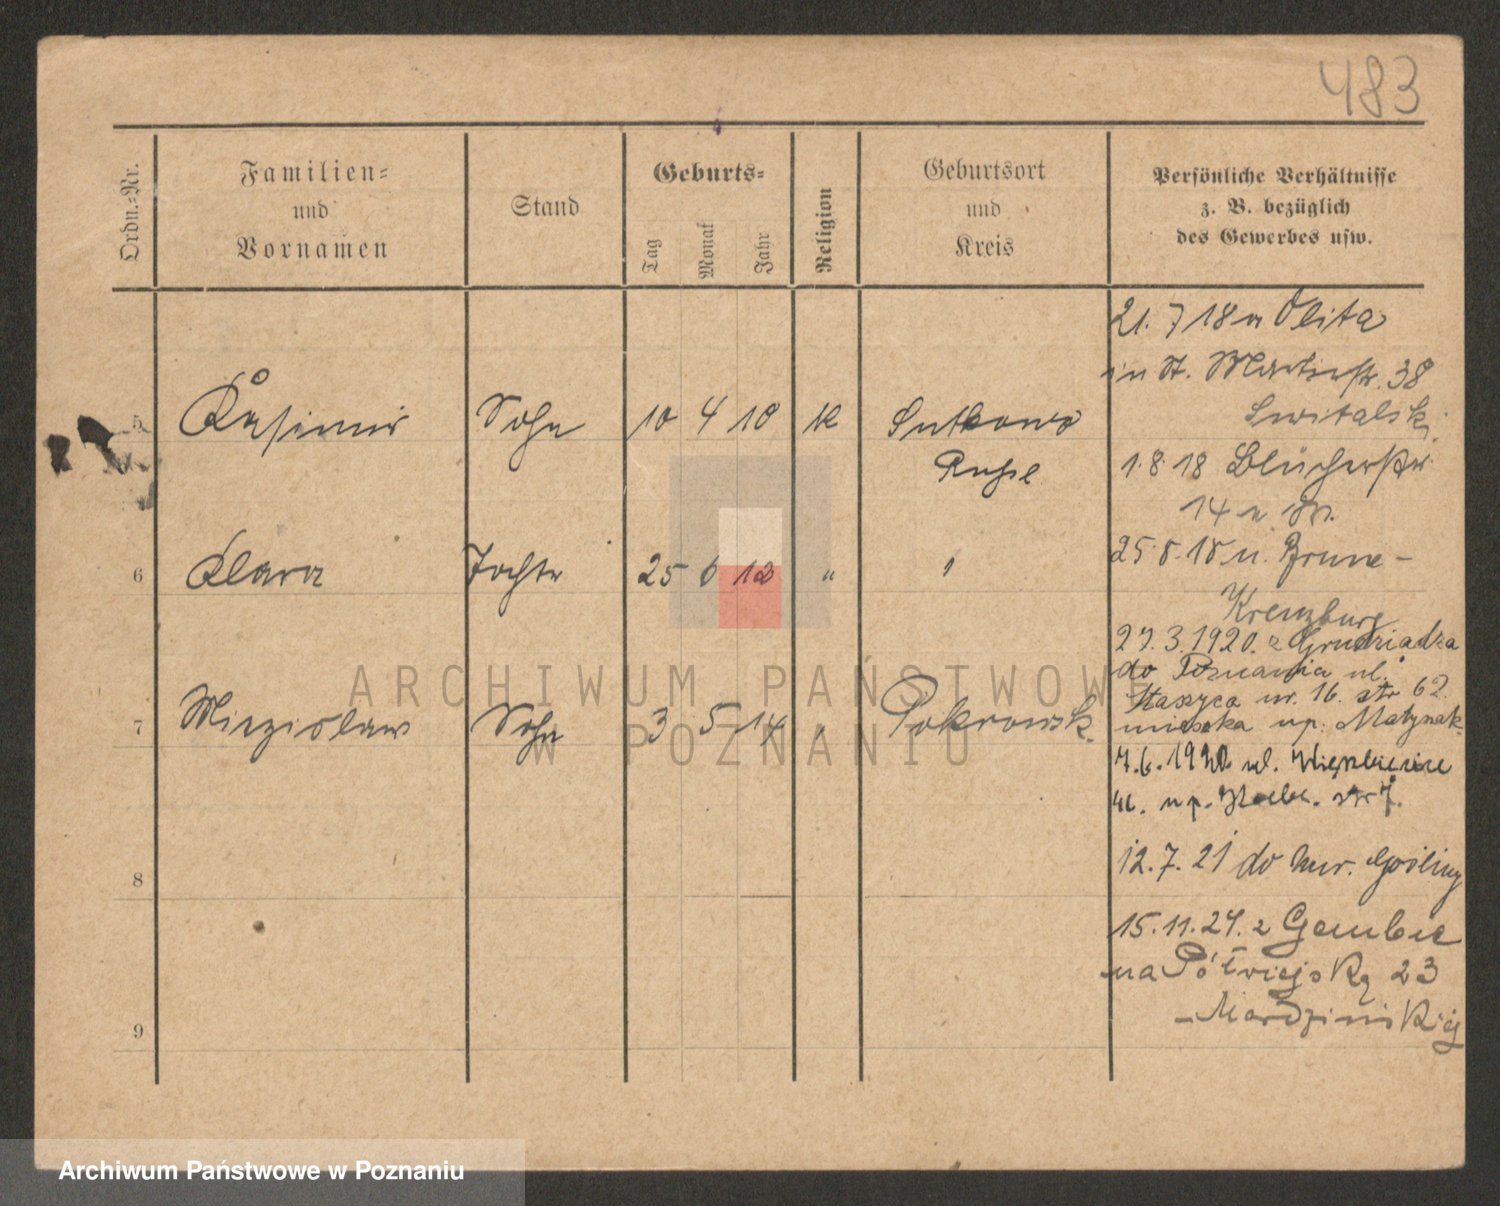 483
Ordn.-Nr.
Familien-
und
Vornamen
Stand
Geburts-
Tag
Monat
Jahr
Religion
Geburtsort
und
Kreis
Persönliche Verhältnisse
z. B. bezüglich
des Gewerbes usw.
5
Kasimir
Sohn
10 4 10
K
Sutkowo
Russl
6
Klara
Tochter
25 6 12
"
7
Miezislaw
Sohn
3 5 14
Pokrowsk.
8
9
21. 7 18 n Olita
in St. Martinstr. 38
Switalski
1.8.18 Blücherstr.
14 n
25.8.18 n. Brune-
Kreuzburg
27.3.1920. z Grudziadza
do Poznania ul.
Staszyca nr. 16. str 62
mieszka up. Matynak.
7.6.1920 ul.
up. str 7.
12.7.21 do Mur. Gośliny
15.11.24. z Gembic
na Półwiejską 23
ARCHIWUM PAŃSTWOWE
W POZNANIU
Archiwum Państwowe w Poznaniu